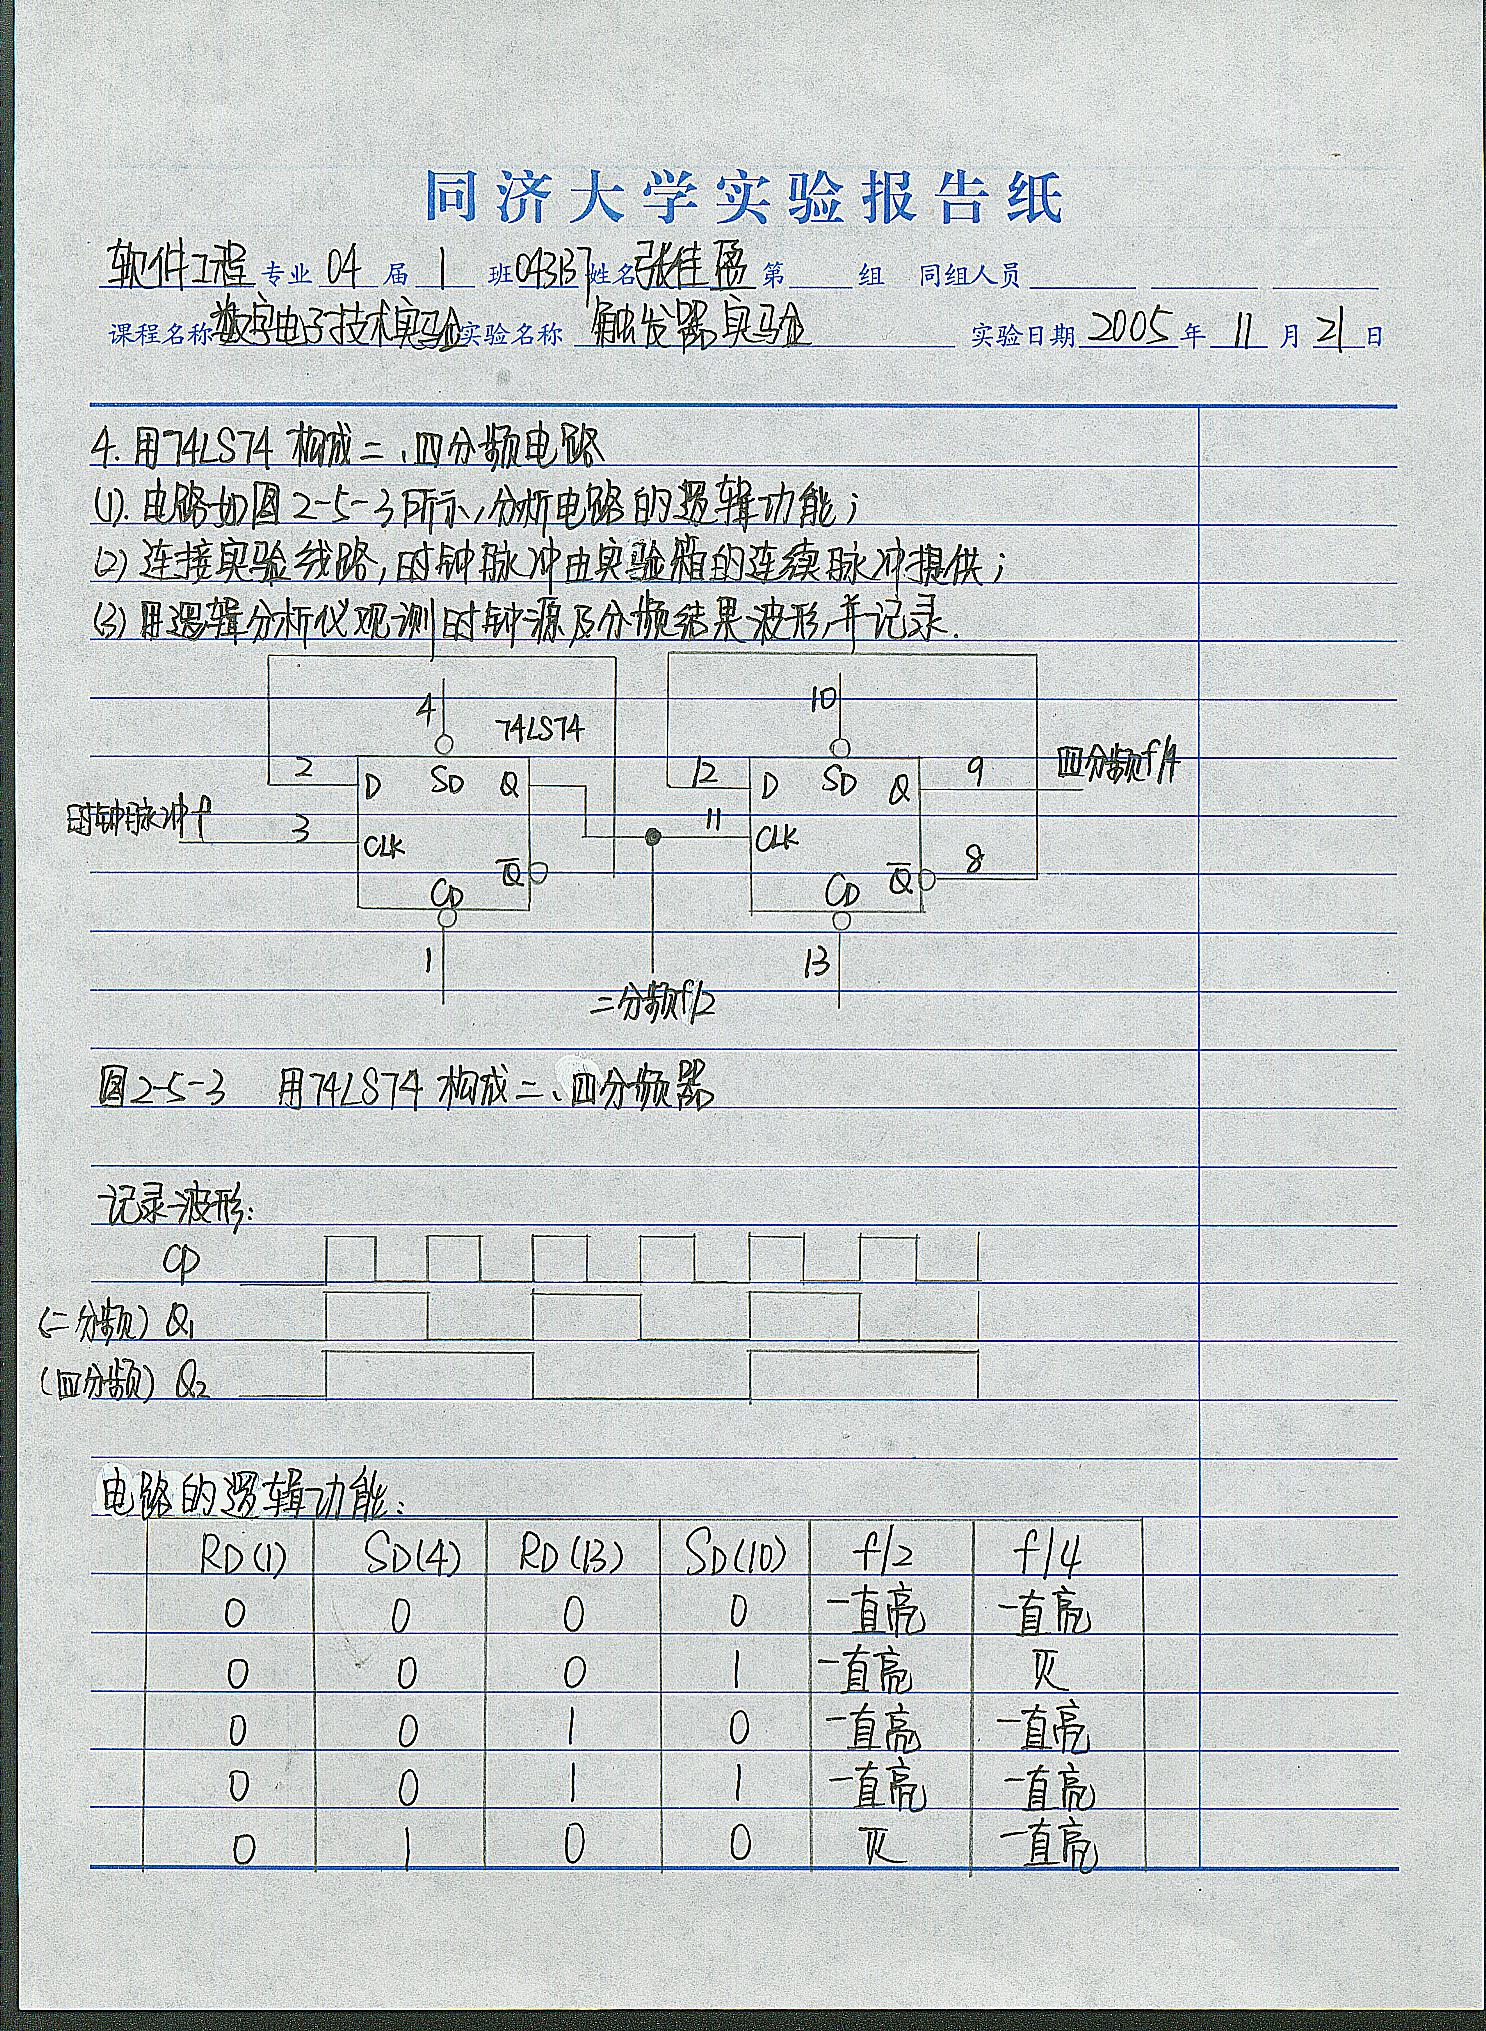 同济大学实验报告纸
软件工程 专业 04 届 1 班 043137 姓名 张佳盈 第 组 同组人员
课程名称 数字电子技术实验 实验名称 触发器实验 实验日期 2005 年 11 月 21 日
4. 用74LS74 构成二、四分频电路
(1). 电路如图2-5-3所示,分析电路的逻辑功能;
(2) 连接实验线路,时钟脉冲由实验箱的连续脉冲提供;
(3) 用逻辑分析仪观测时钟源及分频结果波形,并记录.
4 74LS74 10
2 D SD Q 12 D SD Q 9 四分频f/4
时钟脉冲f 3 CLK 11 CLK
Q̅ Q̅ 8
CD CD
1 13
二分频f/2
图2-5-3 用74LS74 构成二、四分频器
记录波形:
CP
(二分频) Q1
(四分频) Q2
电路的逻辑功能:
RD(1) SD(4) RD(13) SD(10) f/2 f/4
0 0 0 0 一直亮 一直亮
0 0 0 1 一直亮 灭
0 0 1 0 一直亮 一直亮
0 0 1 1 一直亮 一直亮
0 1 0 0 灭 一直亮